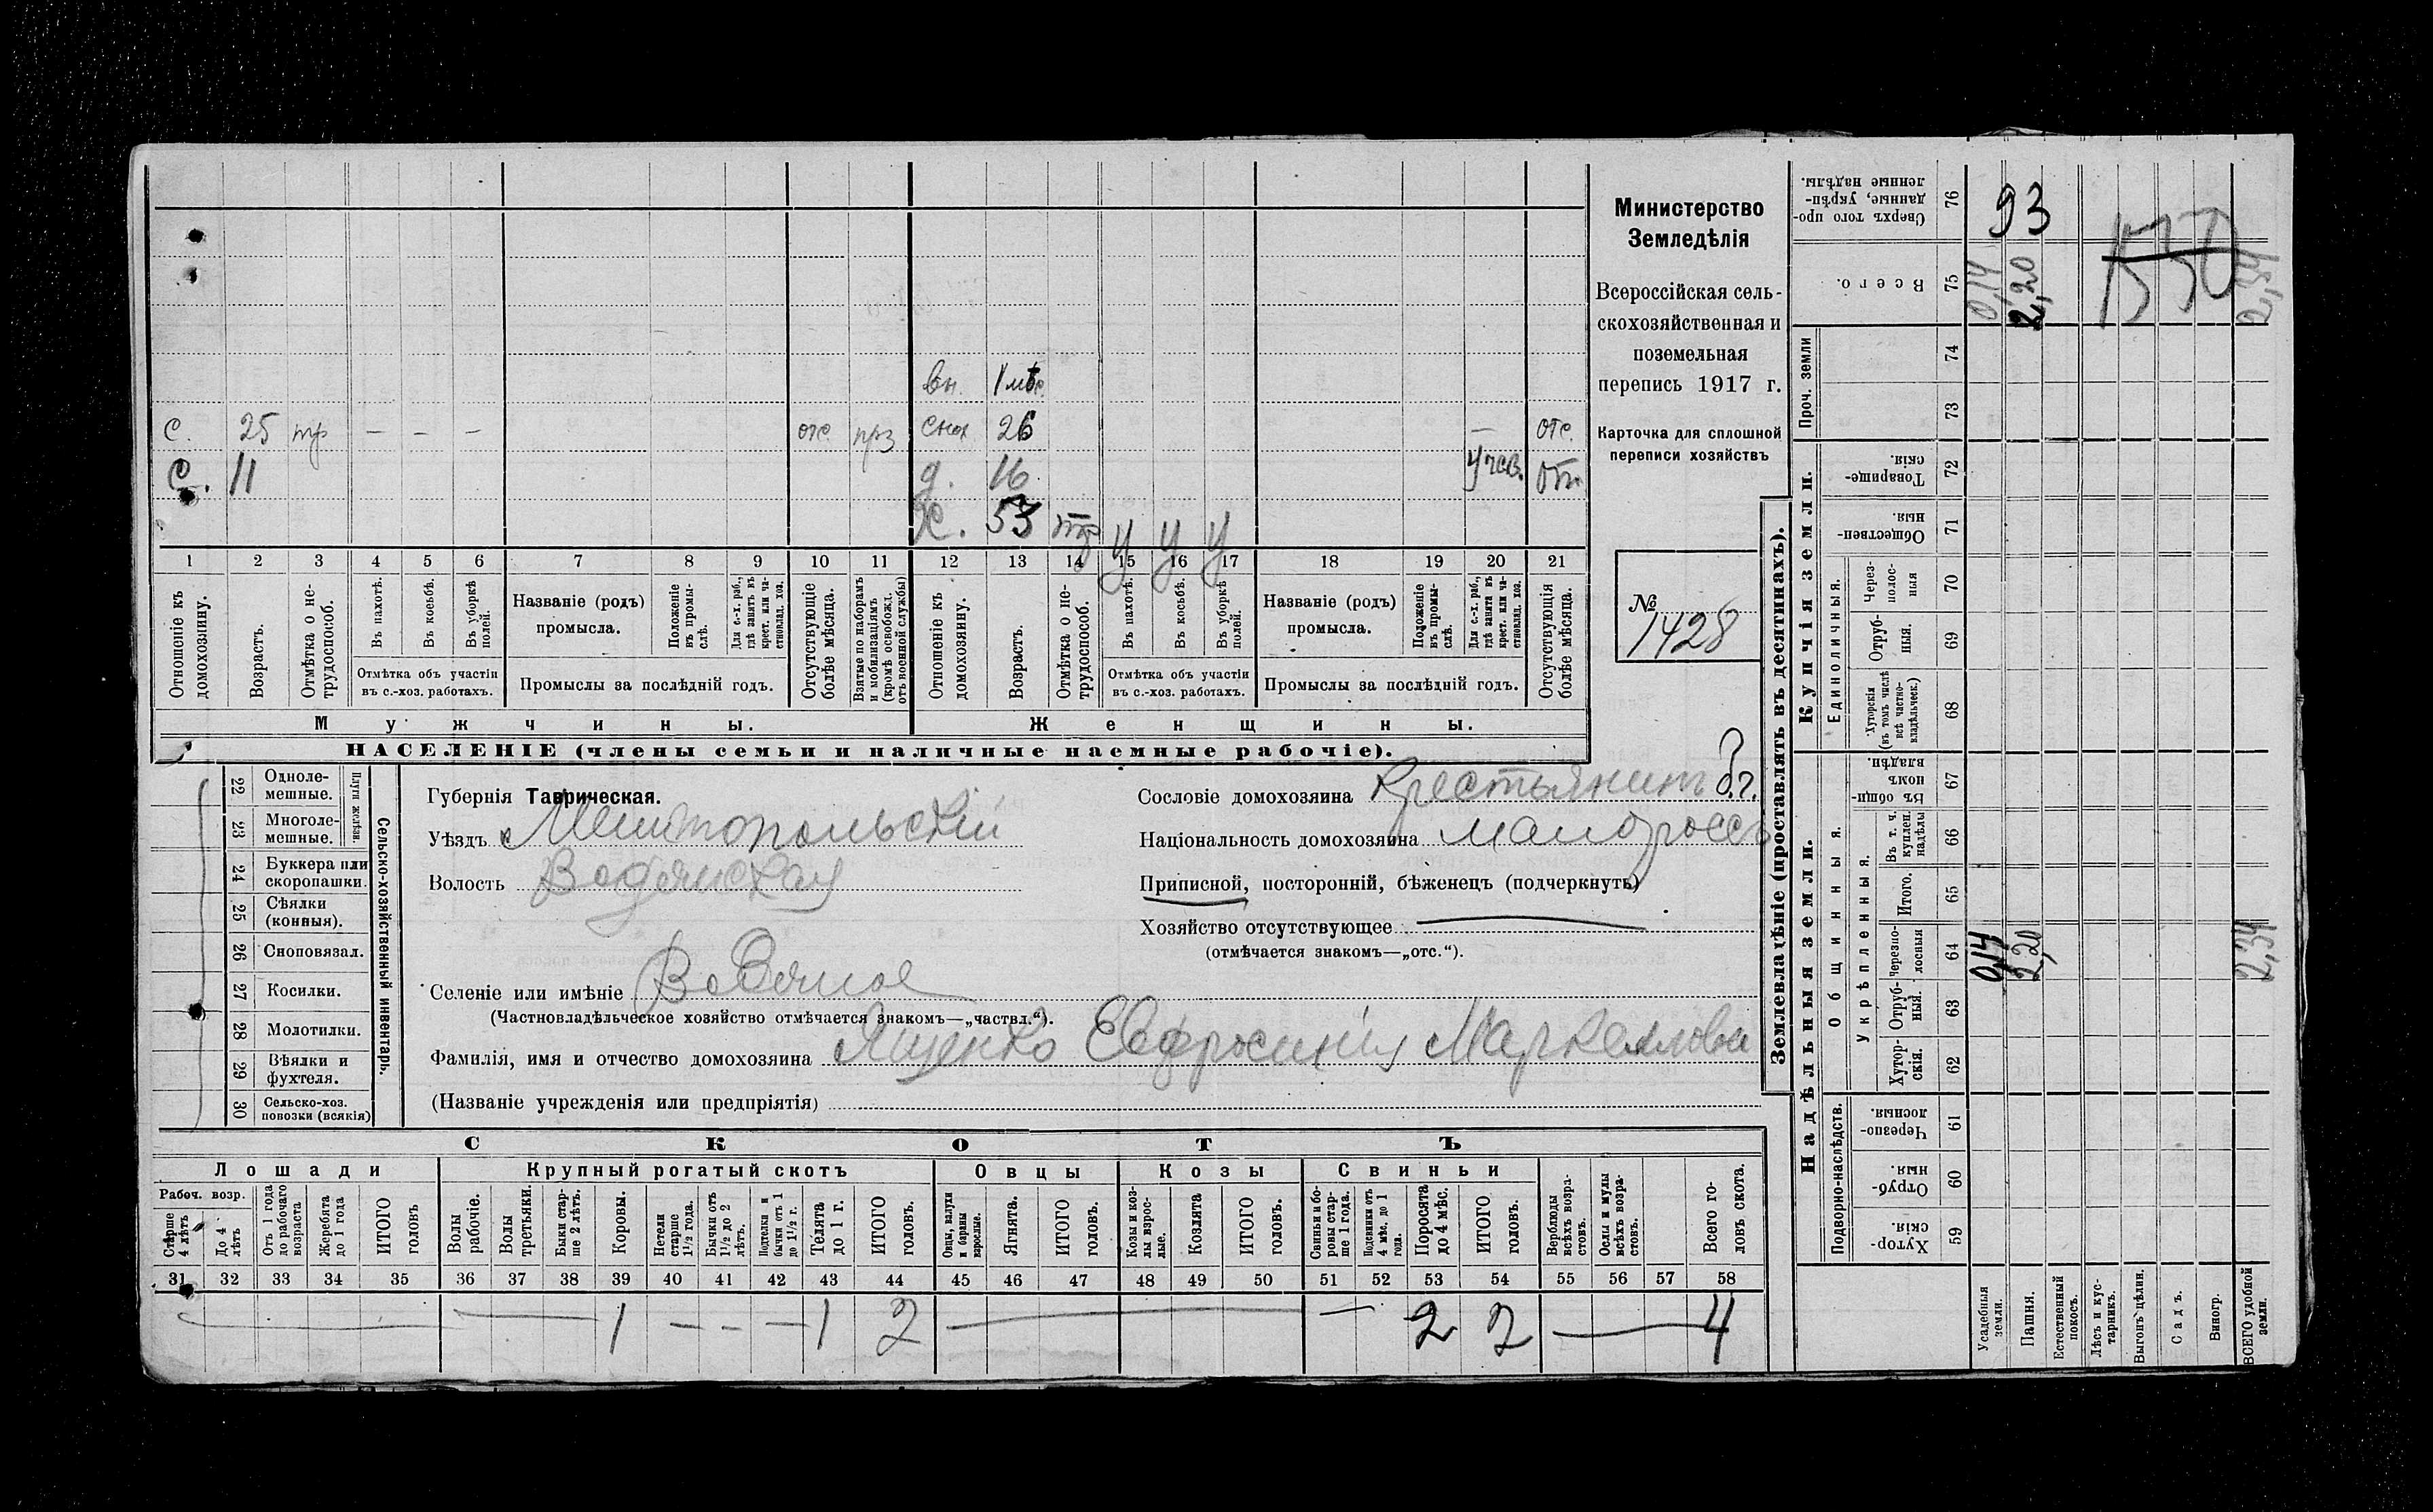 Министерство
Земледѣлія
Всероссійская сель-
скохозяйственная и
поземельная
перепись 1917 г.
Карточка для сплошной
переписи хозяйствъ
№ 1428
вн. 1 мѣс.
с. 25 тр — — — отс. прз снох 26 — отс.
с. 11 д. 16 учев. отс.
ж. 53 тр у у у
1 2 3 4 5 6 7 8 9 10 11 12 13 14 15 16 17 18 19 20 21
Отношеніе къ домохозяину.
Возрастъ.
Отмѣтка о не-трудоспособ.
Въ пахотѣ.
Въ косьбѣ.
Въ уборкѣ полей.
Отмѣтка объ участіи въ с.-хоз. работахъ.
Названіе (родъ) промысла.
Положеніе въ промы-слѣ.
Для с.-х. раб., гдѣ занятъ въ крест. или ча-стновлад. хоз.
Промыслы за послѣдній годъ.
Отсутствующіе болѣе мѣсяца.
Взятые по наборамъ и мобилизаціямъ (кромѣ освобожд. отъ военной службы)
Отношеніе къ домохозяину.
Возрастъ.
Отмѣтка о не-трудоспособ.
Въ пахотѣ.
Въ косьбѣ.
Въ уборкѣ полей.
Отмѣтка объ участіи въ с.-хоз. работахъ.
Названіе (родъ) промысла.
Положеніе въ промы-слѣ.
Для с.-х. раб., гдѣ занята въ крест. или ча-стновлад. хоз.
Промыслы за послѣдній годъ.
Отсутствующія болѣе мѣсяца.
Мужчины. Женщины.
НАСЕЛЕНІЕ (члены семьи и наличные наемные рабочіе).
22 Одноле-мешные.
23 Многоле-мешные.
Плуги желѣзн.
24 Буккера или скоропашки.
25 Сѣялки (конныя).
26 Сноповязал.
27 Косилки.
28 Молотилки.
29 Вѣялки и фухтеля.
30 Сельско-хоз. повозки (всякія)
Сельско-хозяйственный инвентарь.
Губернія Таврическая.
Уѣздъ Мелитопольскій
Волость Водянская
Селеніе или имѣніе Водяное
(Частновладѣльческое хозяйство отмѣчается знакомъ—„частвл.“).
Фамилія, имя и отчество домохозяина Ященко Евфросинія Маркаиловна
(Названіе учрежденія или предпріятія)
Сословіе домохозяина Крестьянинъ б.г.
Національность домохозяина малороссъ
Приписной, посторонній, бѣженецъ (подчеркнуть)
Хозяйство отсутствующее
(отмѣчается знакомъ—„отс.“).
СКОТЪ
Лошади Крупный рогатый скотъ Овцы Козы Свиньи
Рабоч. возр.
Старше 4 лѣтъ
До 4 лѣтъ
Отъ 1 года до рабочаго возраста
Жеребята до 1 года
ИТОГО головъ
Волы рабочіе.
Волы третьяки.
Быки стар-ше 2 лѣтъ.
Коровы.
Нетели старше 1½ года.
Бычки отъ 1½ до 2 лѣтъ.
Подтелки и бычки отъ 1 до 1½ г.
Телята до 1 г.
ИТОГО головъ.
Овцы, валухи и бараны взрослые.
Ягнята.
ИТОГО головъ.
Козы и коз-лы взрос-лые.
Козлята
ИТОГО головъ.
Свиньи и бо-ровы стар-ше 1 года.
Подсвинки отъ 4 мѣс. до 1 года.
Поросята до 4 мѣс.
ИТОГО головъ.
Верблюды всѣхъ возра-стовъ.
Ослы и мулы всѣхъ возра-стовъ.
Всего го-ловъ скота.
31 32 33 34 35 36 37 38 39 40 41 42 43 44 45 46 47 48 49 50 51 52 53 54 55 56 57 58
— — 1 — — — 1 2 — — 2 2 — 4
Землевладѣніе (проставлять въ десятинахъ).
Надѣльныя земли. Купчія земли. Проч. земли
Подворно-наслѣдств.
Общинныя.
Укрѣпленныя.
Единоличныя.
59 Хутор-скія.
60 Отруб-ныя.
61 Черезпо-лосныя.
62 Хутор-скія.
63 Отруб-ныя.
64 Черезпо-лосныя
65 Итого.
66 Въ т. ч. куплен. надѣлы
67 Въ общин-номъ владѣн.
68 Хуторскія (въ томъ числѣ всѣ частно-владѣльческ.)
69 Отруб-ныя.
70 Через-полос-ныя
71 Обществен-ныя.
72 Товарище-скія.
73
74
75 Всего.
76 Сверхъ того про-данные, укрѣп-ленные надѣлы.
Усадебныя земли.
Пашня.
Естественный покосъ.
Лѣсъ и кус-тарникъ.
Выгонъ цѣлин.
Садъ.
Виногр.
ВСЕГО удобной земли.
0,14 2,20 2,34
0,14 2,20 2,34
93
1530